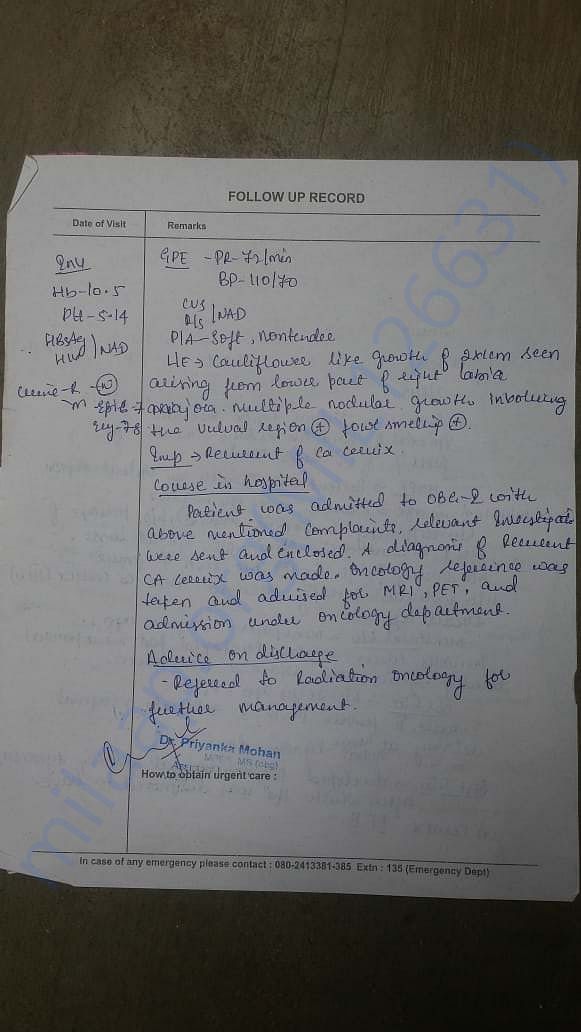 FOLLOW UP RECORD
Date of Visit
Remarks
Inv
Hb-10.5
Plt-5.14
HBsAg
HIV | NAD
Urine-R - N
M - Epi 6-7
GPE - PR-72/min
BP-110/70
CVS
R/S | NAD
P/A - Soft, nontender
LE → Cauliflower like growth of 2x1cm seen
arising from lower part of right labia
majora. Multiple nodular growth involving
the vulval region ⊕ foul smelling ⊕.
Imp → Recurrent of Ca cervix.
Course in hospital
Patient was admitted to OBG-2 with
above mentioned complaints, relevant Investigati
were sent and enclosed. A diagnosis of Recurrent
CA cervix was made. Oncology reference was
taken and adviced for MRI, PET, and
admission under oncology department.
Advice on discharge
- Refered to Radiation oncology for
further management.
Dr. Priyanka Mohan
MBBS, MS (obg)
How to obtain urgent care :
In case of any emergency please contact : 080-2413381-385 Extn : 135 (Emergency Dept)